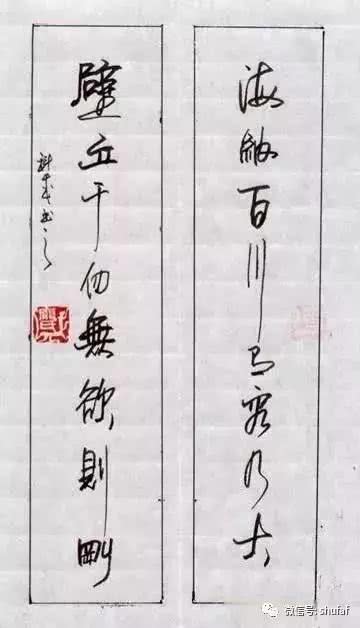 海納百川有容乃大
壁立千仞無欲則剛
微信号: shufaf